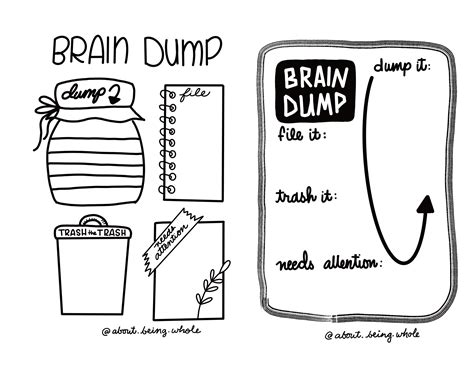 BRAIN DUMP
dump
file
TRASH the TRASH
needs
attention
@about.being.whole
BRAIN
DUMP
dump it:
file it:
trash it:
needs attention:
@about.being.whole